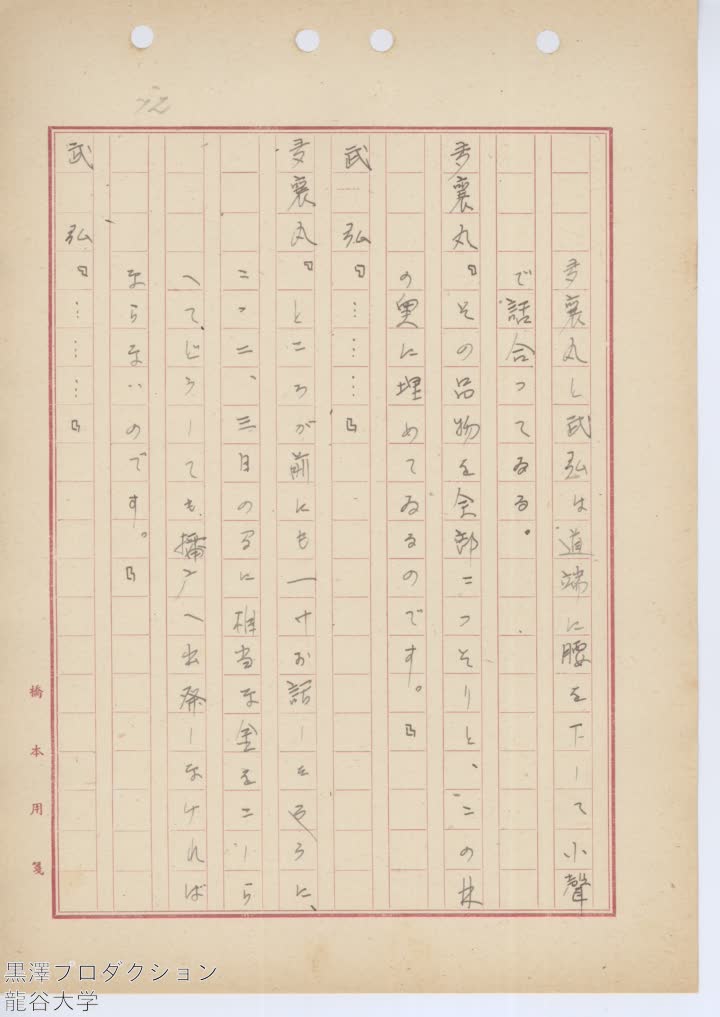 72
多襄丸と武弘は道端に腰を下して小聲
で話合つてゐる。
多襄丸『その品物を全部こつそりと、この林
の奥に埋めてゐるのです。』
武　弘『………』
多襄丸『ところが前にも一寸お話しとやうに、
こゝ二、三日の間に相当な金をこしら
へて、どうしても播へ出発しなければ
ならないのです。』
武　弘『………』
橋本用箋
黒澤プロダクション
龍谷大学